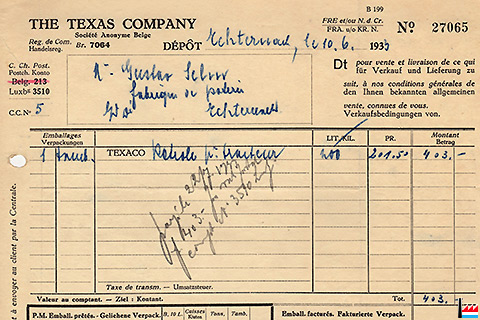 B 199
THE TEXAS COMPANY
Société Anonyme Belge
Reg. de Com.
Handelsreg. Br. 7064
DÉPÔT Echternach, le 10.6. 1933
FRE et/ou N. d. Cr.
FRA. u/o KR. N.
No 27065
C. Ch. Post.
Postch. Konto
Belg. 213
Luxb° 3510
C.C.N° 5
Mr Gustav
Fabrique de
Echternach
Dt pour vente et livraison de ce qui
für Verkauf und Lieferung zu
suit, à nos conditions générales de
den Ihnen bekannten allgemeinen
vente, connues de vous.
Verkaufsbedingungen von.
Emballages
Verpackungen
LIT/KIL.
PR.
Montant
Betrag
1 TEXACO pr Tracteur 200 201.50 403.-
payé le 22/7 1933
1403.-
compte 3510
Taxe de transm. — Umsatzsteuer.
Valeur au comptant. - Ziel : Kontant.
Tot. 403.-
P.M. Emball. prêtés. - Geliehene Verpack.
B, 10 l.
Caisses
Kisten
Tons,
Tamb.
Emball. facturés. Fakturierte Verpack.
à envoyer au client par la Centrale.